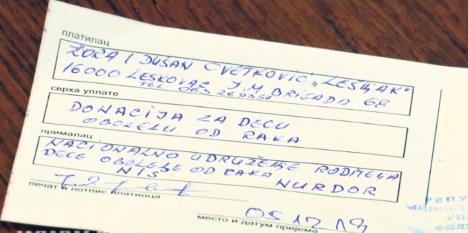 платилац
ZORA I DUŠAN CVETKOVIĆ „LEŠĆAK"
16000 LESKOVAC J.M. BRIGADA 6R
TEL
сврха уплате
DONACIJA ZA DECU
OBOLELU OD RAKA
прималац
NACIONALNO UDRUŽENJE RODITELJA
DECE OBOLELE OD RAKA
NIŠ NURDOR
печат и потпис платиоца
05.12.19
место и датум пријема